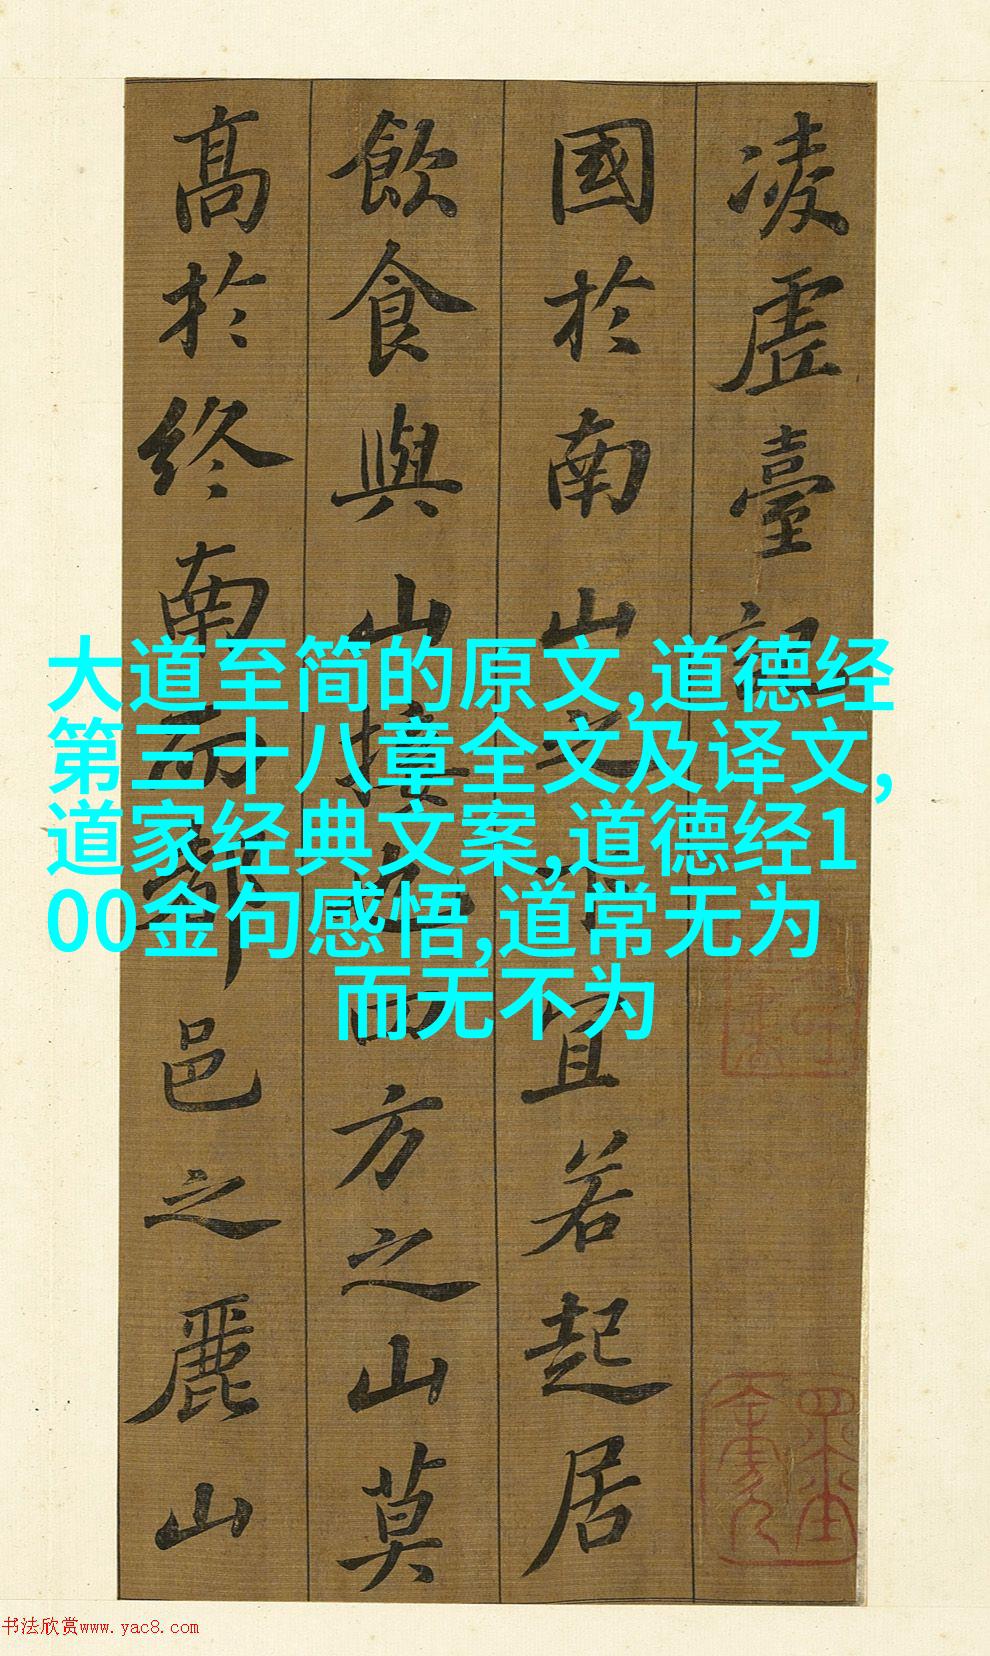 凌虛臺記
國於南山之下宜若起居
飲食與山接也四方之山莫
高於終南而都邑之麗山
大道至简的原文,道德经
第三十八章全文及译文,
道家经典文案,道德经1
00金句感悟,道常无为
而无不为
书法欣赏www.yac8.com